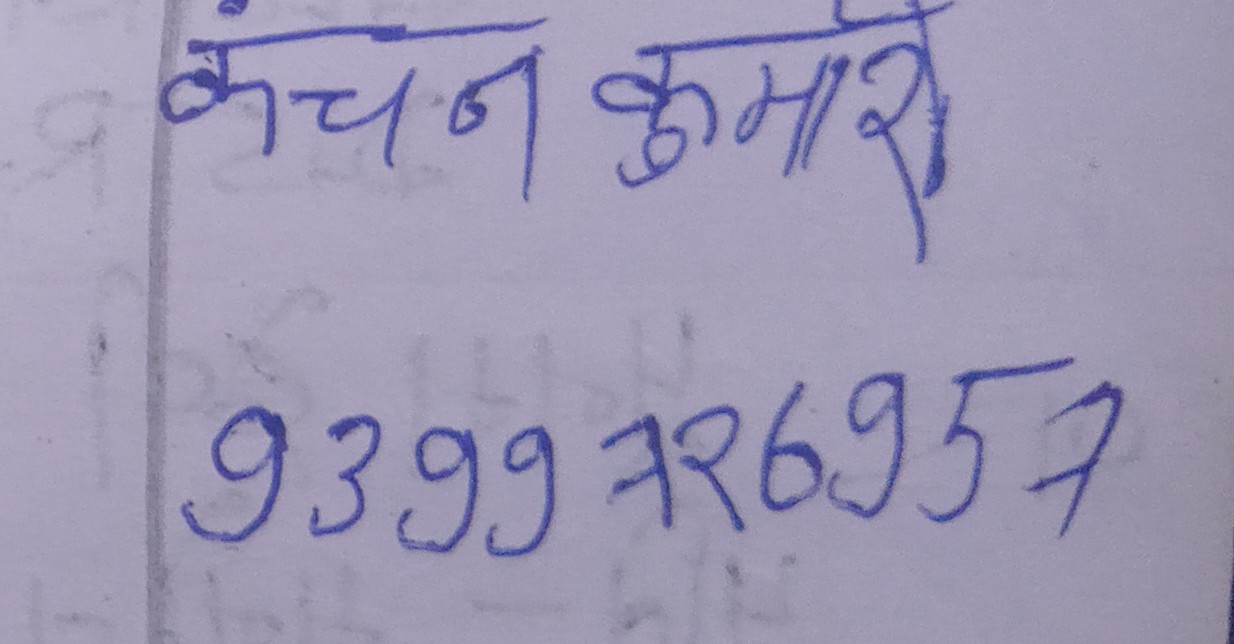 कंचन कुमारी
9399726957